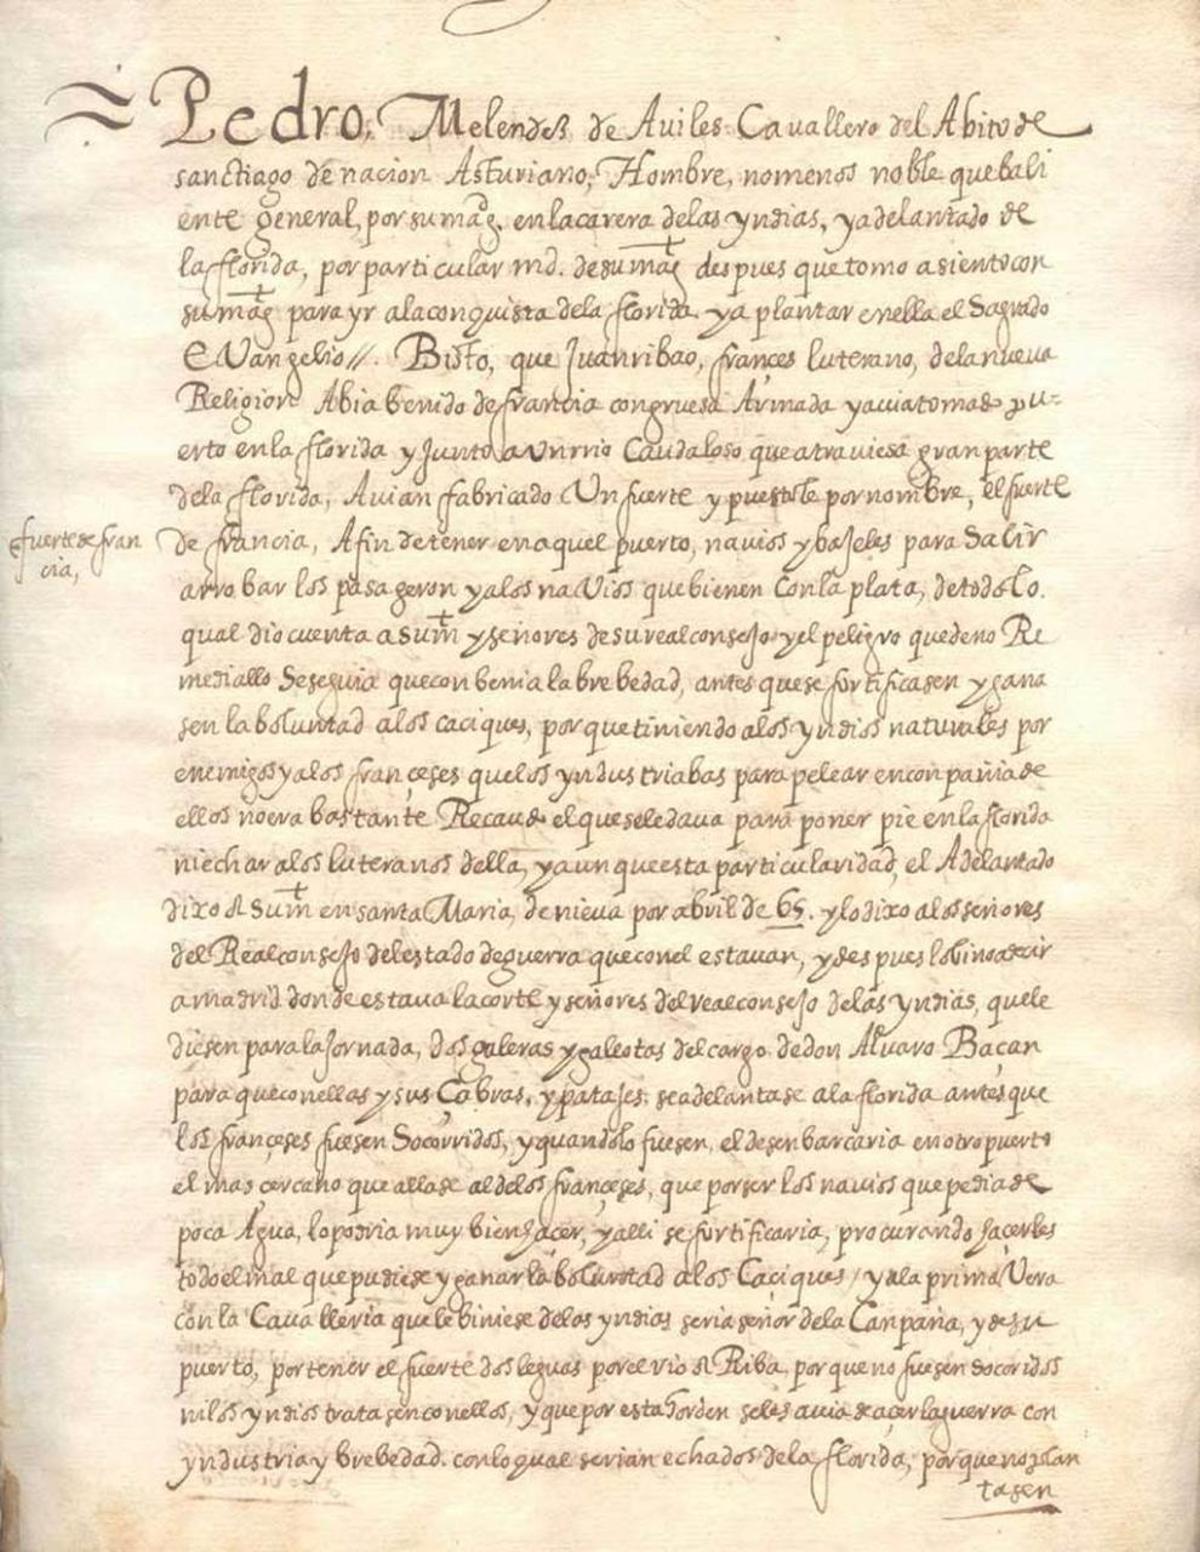 Pedro, Melendes de Auiles Cauallero del Abito de
sanctiago de nacion Asturiano, Hombre, nomenos noble que bali
ente general, por su mag. en la carera de las yndias, y adelantado de
la florida, por particular md. de su mag despues que tomo asiento con
su mag para yr ala conquista dela florida. y a plantar enella el Sagrado
EVangelio//. Bisto, que Juan ribao, frances luterano, dela nueua
Religion Abia benido de francia con gruesa Armada y auia tomado pu-
erto en la florida y Junto a Vn rrio Caudaloso que atrauiesa gran parte
dela florida, Auian fabricado Un fuerte y puestole por nombre, el fuerte
fuerte de fran
cia,
de francia, Afin de tener en aquel puerto, nauios y baJeles para Salir
arrobar los pasageron y alos naVios que bienen Con la plata, de todo Lo.
qual dio cuenta a sum y señores de su real conseJo y el peligro que de no Re
mediallo Se seguia que conbenia la brebedad, antes que se fortificasen y gana
sen la boluntad alos caciques, por que tiniendo alos yndios naturales por
enemigos y alos françeses que los yndustriabas para pelear en conpañia de
ellos no era bastante Recaudo el que se le daua para poner pie en la florida
ni echar alos luteranos della, y aun que esta particularidad, el Adelantado
dixo a Sum en santa Maria, de nieua por abril de 65. y lo dixo alos señores
del Real conseJo del estado de guerra que con el estauan, y despues lo bino a decir
a madrid donde estaua la corte y señores del real conseJo delas yndias, que le
diesen para la Jornada, dos galeras y galeotas del cargo de don Aluaro Baçan
para que con ellas y sus Çabras, y pataJes. se adelantase ala florida antes que
los françeses fuesen Socorridos, y quando lo fuesen, el desenbarcaria en otro puerto
el mas çercano que allase al delos françeses, que por ser los nauios que pedia de
poca Agua, lo podria muy bien haçer, y alli se fortificaria, procurando haçerles
todo el mal que pudiese y ganar la boluntad alos Caçiques / y ala prima Vera
con la Caualleria que le biniese delas yndias seria señor dela Canpaña, y de su
puerto, por tener el fuerte dos leguas por el rio a Riba, por que no fuesen socoridos
ni los yndios tratasen con ellos, y que por esta horden seles auia de açer la guerra con
yndustria y brebedad. con lo qual serian echados dela florida, por que no plan
tasen